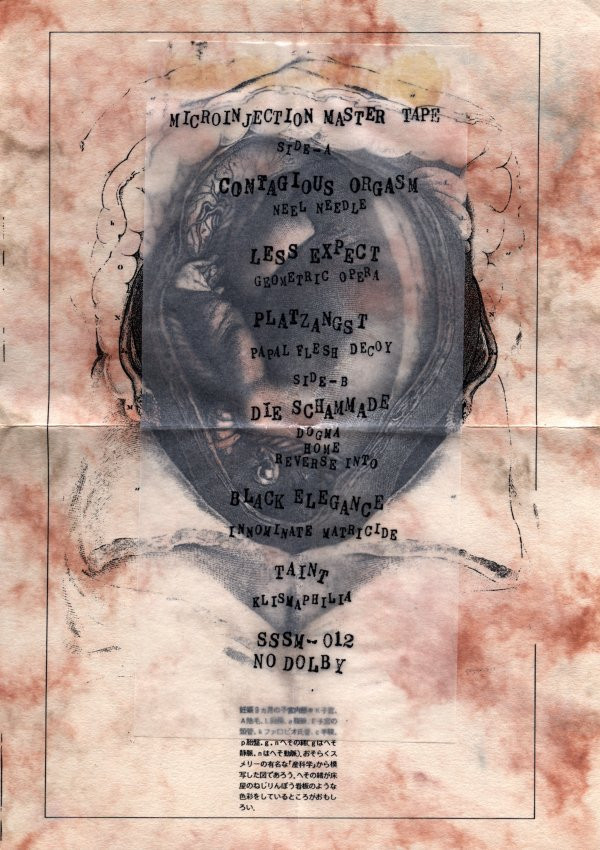 MICROINJECTION MASTER TAPE
SIDE-A
CONTAGIOUS ORGASM
NEEL NEEDLE
LESS EXPECT
GEOMETRIC OPERA
PLATZANGST
PAPAL FLESH DECOY
SIDE-B
DIE SCHAMMADE
DOGMA
HOME
REVERSE INTO
BLACK ELEGANCE
INNOMINATE MATRICIDE
TAINT
KLISMAPHILIA
SSSM-012
NO DOLBY
の子宮内部 K子宮、
A陰毛、 子宮の
kファロピオ氏管、
p胎盤、g、nへその緒(gはへそ
静脈、nはへそ動脈)。おそらくス
メリーの有名な「産科学」から模
写した図であろう。へその緒が床
屋のねじりんぼう看板のような
色彩をしているところがおもし
ろい。